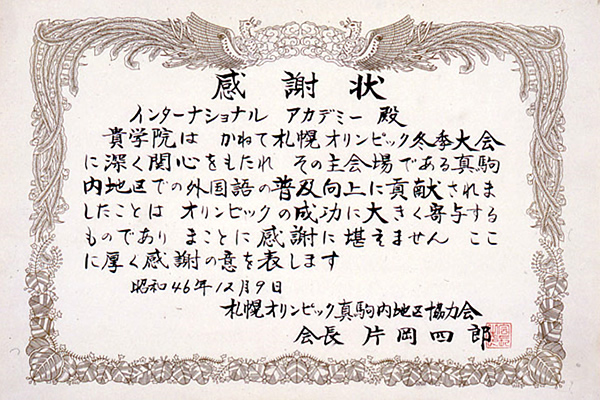 感謝状
インターナショナル アカデミー 殿
貴学院は かねて札幌オリンピック冬季大会
に深く関心をもたれ その主会場である真駒
内地区での外国語の普及向上に貢献されま
したことは オリンピックの成功に大きく寄与する
ものであり まことに感謝に堪えません ここ
に厚く感謝の意を表します
昭和46年12月9日
札幌オリンピック真駒内地区協力会
会長 片岡四郎